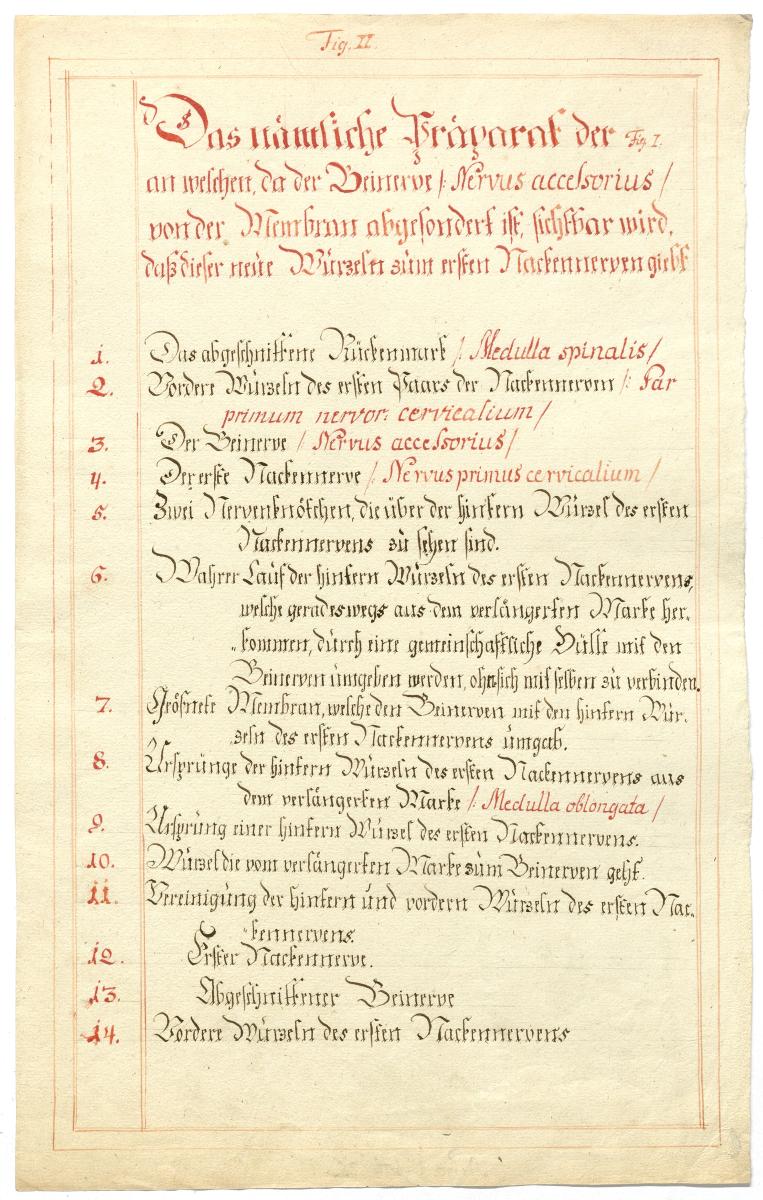 Fig. II.
Das nämliche Präparat der Fig. I.
an welchen, da der Beinerve /: Nervus accessorius /
von der Membran abgesondert ist, sichtbar wird,
daß dieser neue Würzeln züm ersten Nackennerven giebt
1. Das abgeschnittene Rückenmark /: Medulla spinalis /
2. Vordere Würzeln des ersten Paars der Nackennerven /: Par
primum nervor: cervicalium /
3. Der Beinerve /: Nervus accessorius /
4. Der erste Nackennerve /: Nervus primus cervicalium /
5. Zwei Nervenknötchen, die über der hintern Würzel des ersten
Nackennervens zü sehen sind.
6. Wahrer Lauf der hintern Würzeln des ersten Nackennervens,
welche geradeswegs aus dem verlängerten Marke her-
kommen, dürch eine gemeinschaftliche Hülle mit den
Beinerven ümgeben werden, ohne sich mit selben zü verbinden.
7. Geöfnete Membran, welche den Beinerven mit den hintern Wür-
zeln des ersten Nackennervens ümgab.
8. Ursprünge der hintern Würzeln des ersten Nackennervens aus
dem verlängerten Marke /: Medulla oblongata /
9. Ursprüng einer hintern Würzel des ersten Nackennervens.
10. Würzel die vom verlängerten Marke züm Beinerven geht.
11. Vereinigüng der hintern ünd vordern Würzeln des ersten Nac-
kennervens.
12. Erster Nackennerve.
13. Abgeschnittener Beinerve
14. Vordere Würzeln des ersten Nackennervens